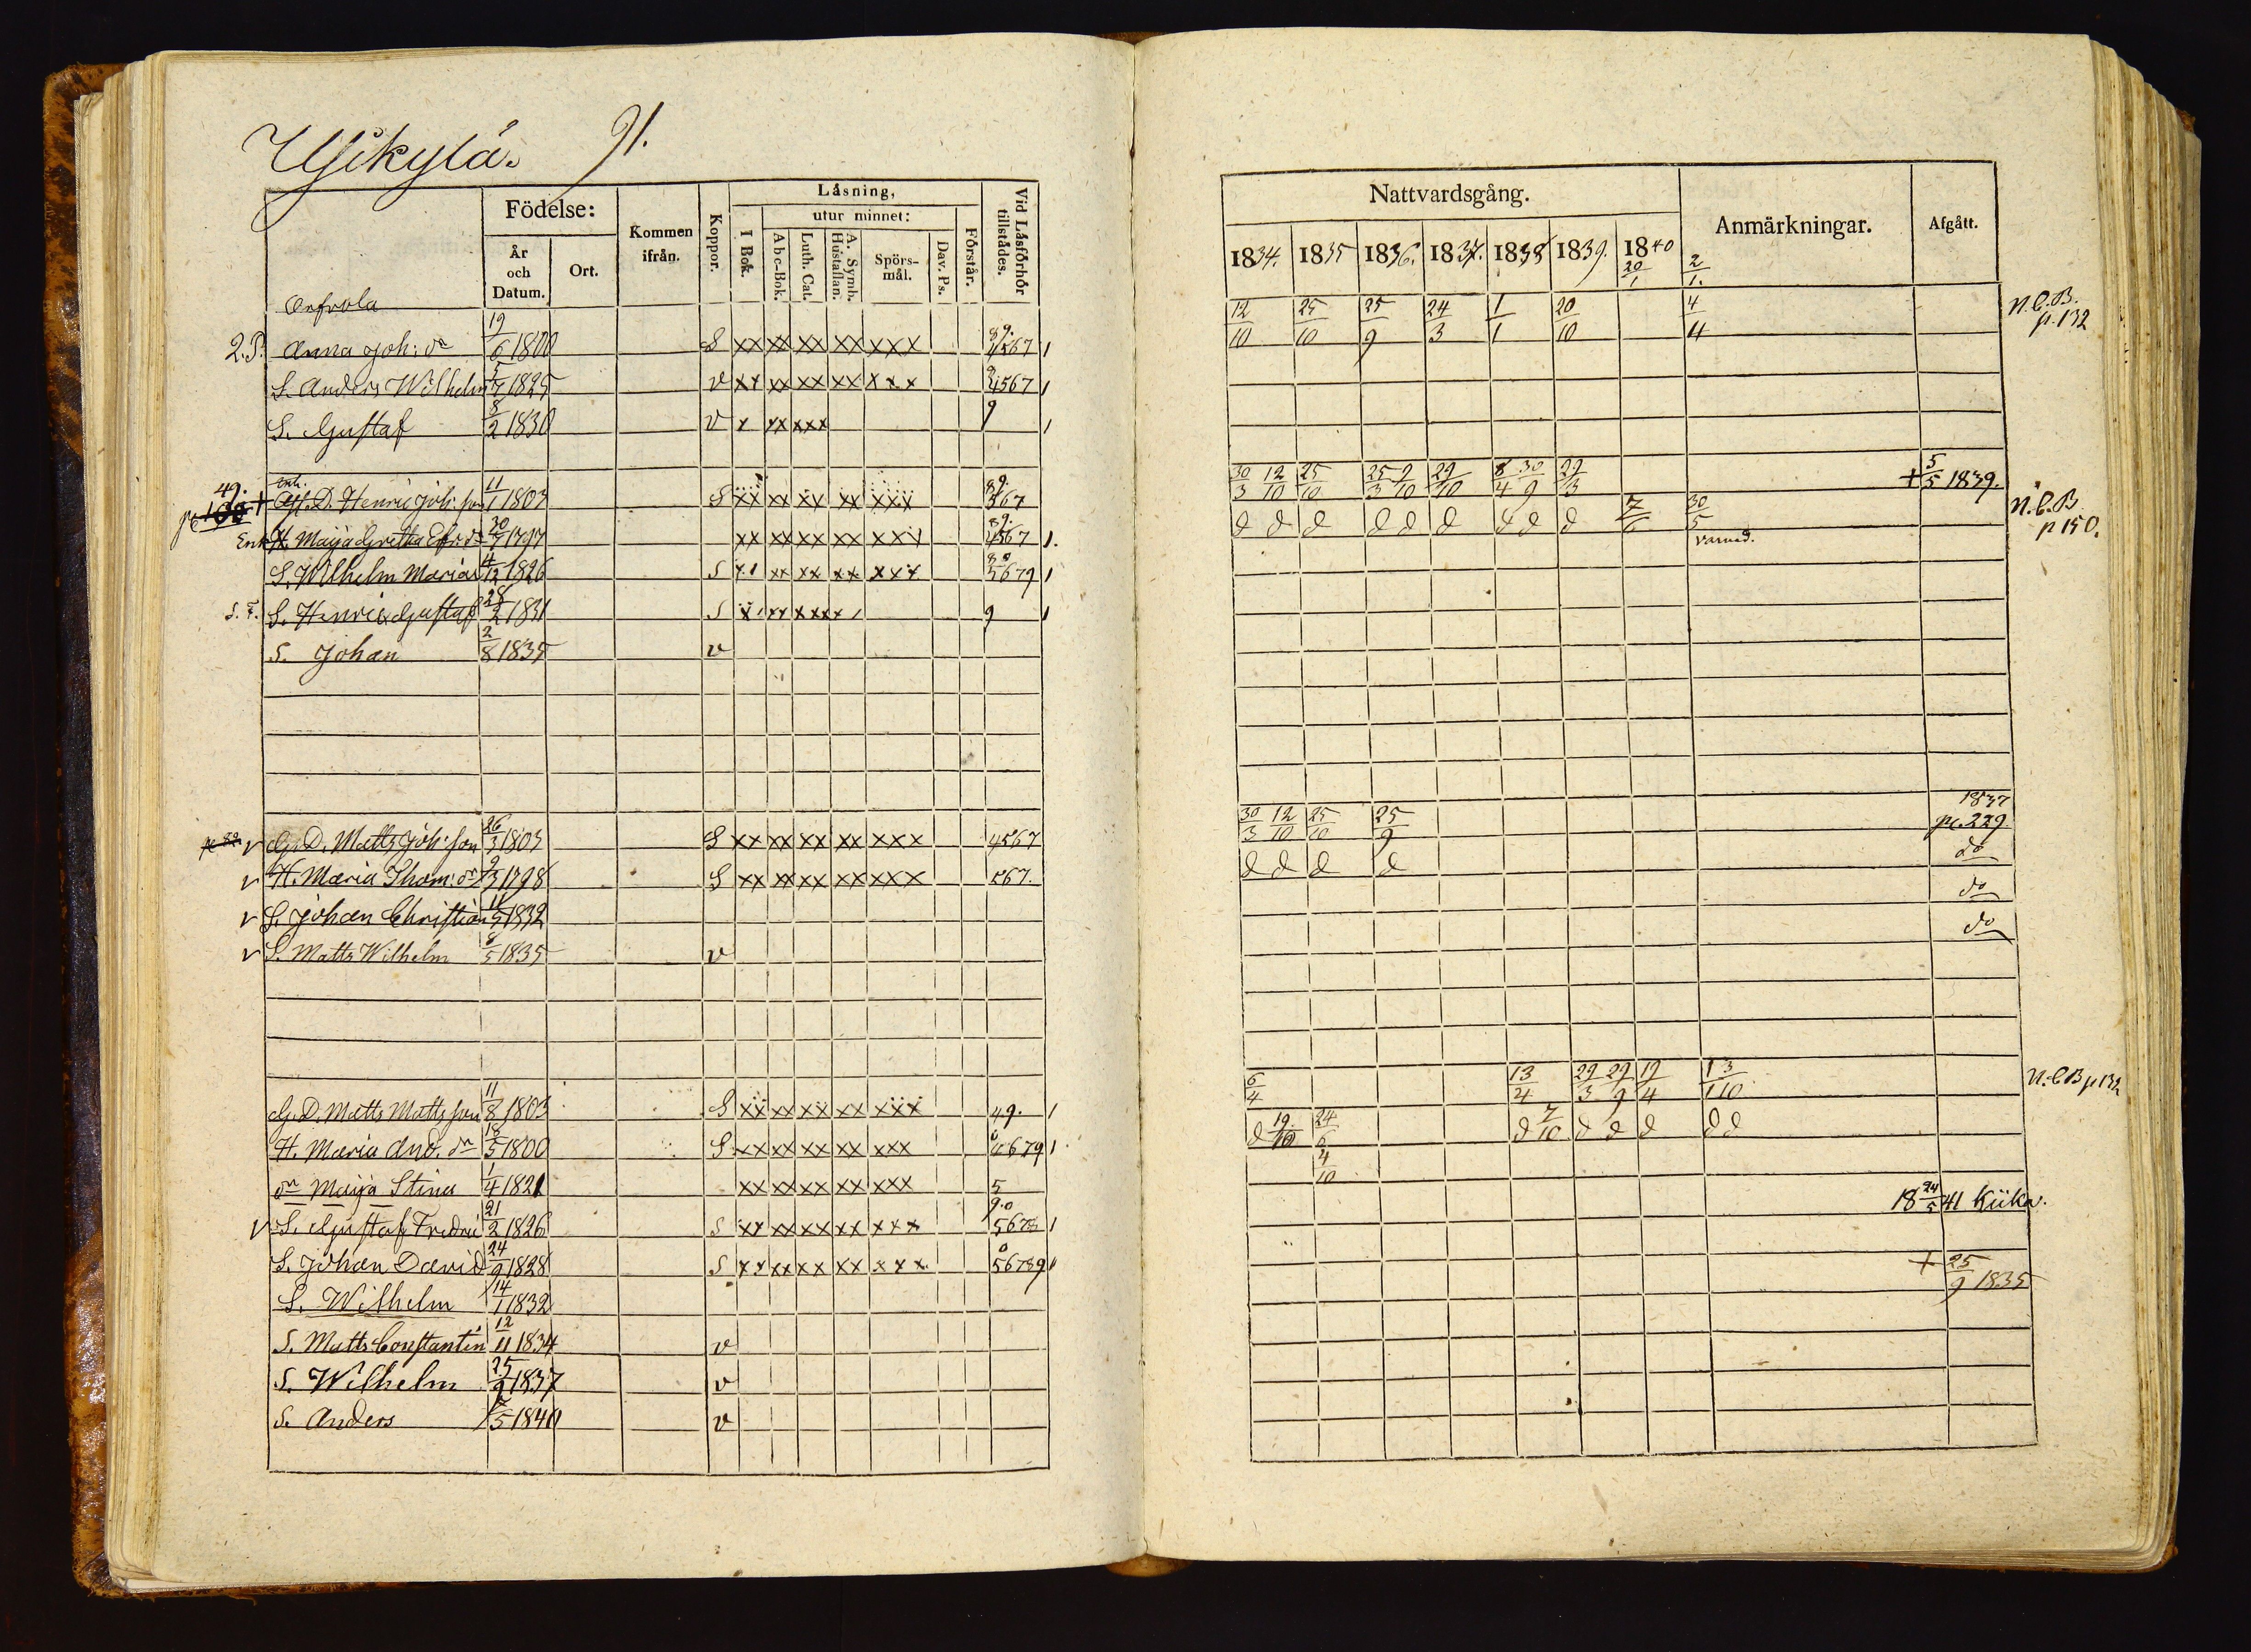 91.
Födelse:
År och Datum.
Ort.
Kommen ifrån.
Koppor.
Läsning,
utur minnet:
I Bok.
Abc-Bok.
Luth. Cat.
A. Symb. Hustaflan.
Spörs-mål.
Dav. Ps.
Förstår.
Vid Läsförhör tillstådes.
Nattvardsgång.
Anmärkningar.
Afgått.
1834. 1835 1836. 1837. 1838 1839. 1840
20/1 2/1.
2.P. Anna Joh: dr 19/6 1800 S xx xx xx xx xxx 89. 4567 1 12/10 25/10 25/9 24/3 1/1 20/10 4/4 N.C.B. p.132
S. Anders Wilhelm 5/7 1825 v xx xx xx xx xxx 9 4567 1
S. Gustaf 8/2 1830 v x xx xxx 9 1
49. + enk. D. Henric Joh: son 11/1 1803 S xx xx xx xx xxx 89. 567 30/3 12/10 25/10 25/3 9/10 29/10 8/4 30/9 29/3 + 5/5 1839.
Enk H. Maija Gretha 30/7 1797 xx xx xx xx xxx 89. 4567 1. d d d d d d d d d 7/6 30/5 N.C.B p 150.
S. Wilhelm Marias 4/12 1826 S xx xx xx xx xxx 5679 1
S. Henric Gustaf 28/2 1831 S 9 1
S. Johan 2/8 1835 v
G.D. Matts Joh: son 26/3 1803 S xx xx xx xx xxx 4567 30/3 12/10 25/10 25/9 1837 p. 229.
v H. Maria Thom: dr 2/3 1798 S xx xx xx xx xxx 567. d d d d do
v S. Johan Christian 11/5 1832 do
v S. Matts Wilhelm 8/5 1835 v do
G.D. Matts Matts son 11/8 1803 S xx xx xx xx xxx 49. 1 6/4 13/4 29/3 29/9 19/4 1/1 3/10 N.C.B p 132
H. Maria And. dr 18/5 1800 S xx xx xx xx xxx 679 1 d 19/10 24/6 d 7/10 d d d d d
dr Maija Stina 1/4 1821 xx xx xx xx xxx 5 4/10
v S. Gustaf Fredric 21/2 1826 S xx xx xx xx xxx 9.0 567 1 18 24/5 41 Kiika.
S. Johan David 24/9 1828 S xx xx xx xx xxx 56789 1
S. Wilhelm 14/1 1832 + 25/9 1835
S. Matts Constantin 12/11 1834 v
S. Wilhelm 25/9 1837 v
S. Anders 1840 v